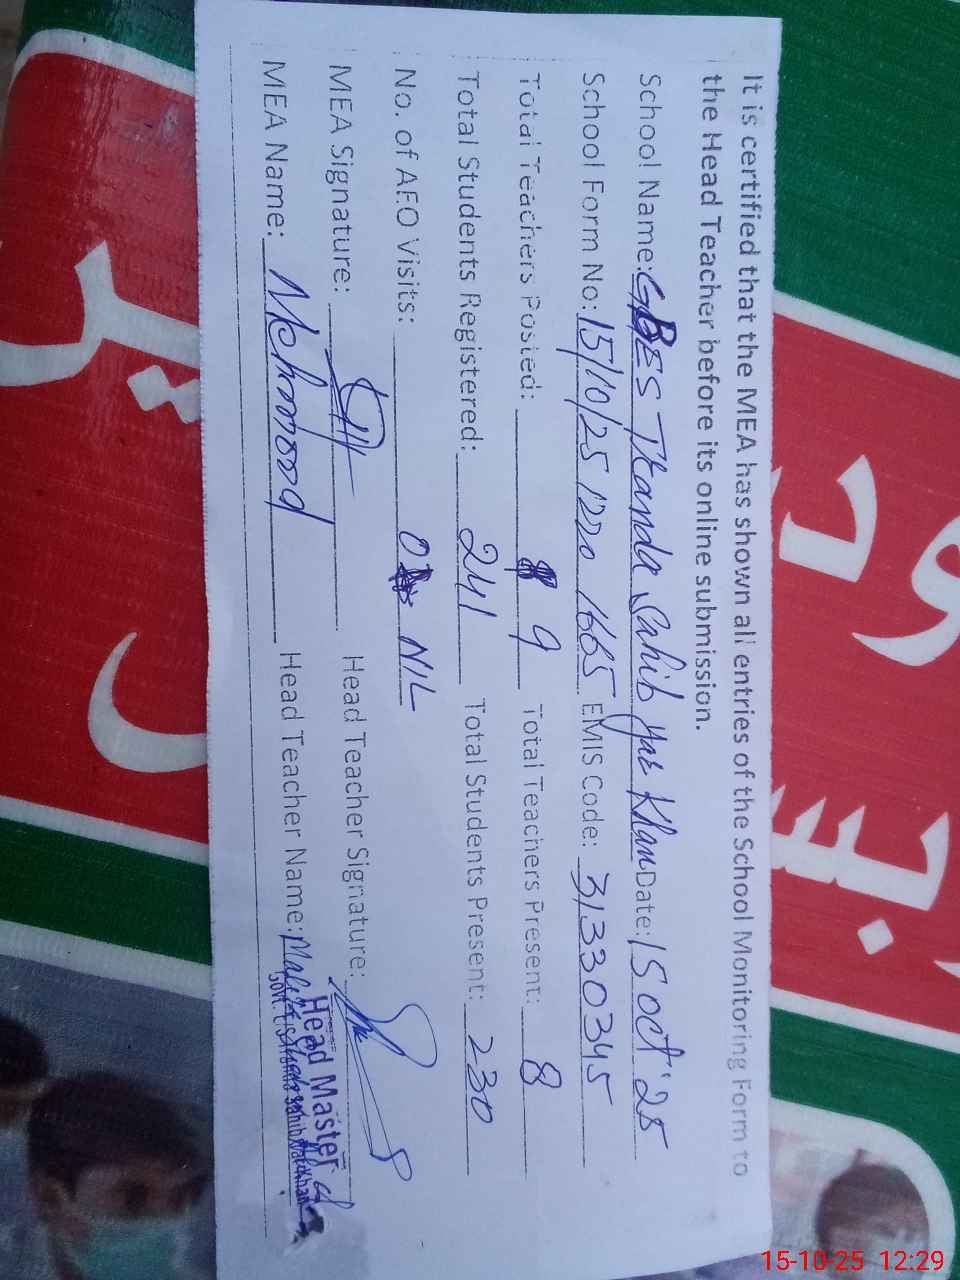 It is certified that the MEA has shown all entries of the School Monitoring Form to
the Head Teacher before its online submission.
School Name: GBES Thanda Sahib Yar Khan Date: 15 Oct '25
School Form No: 15/10/25 1220 1665 EMIS Code: 31330345
Total Teachers Posted: 9 Total Teachers Present: 8
Total Students Registered: 241 Total Students Present: 230
No. of AEO Visits: 0 NIL
MEA Signature: Head Teacher Signature:
MEA Name: Mehmood Head Teacher Name:
Head Master
15-10-25 12:29